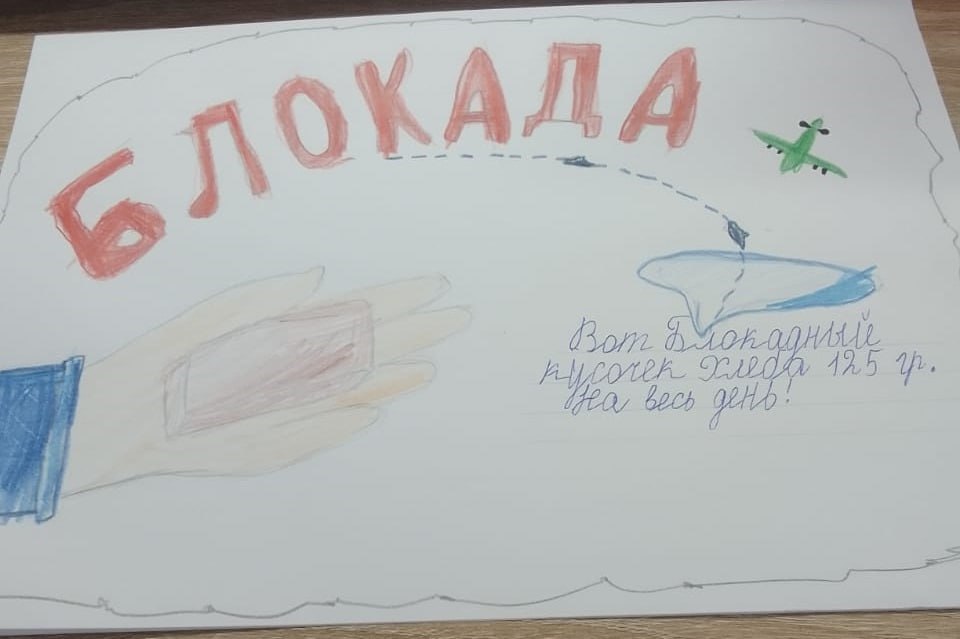 БЛОКАДА
Вот Блокадный
кусочек Хлеба 125 гр.
На весь день!